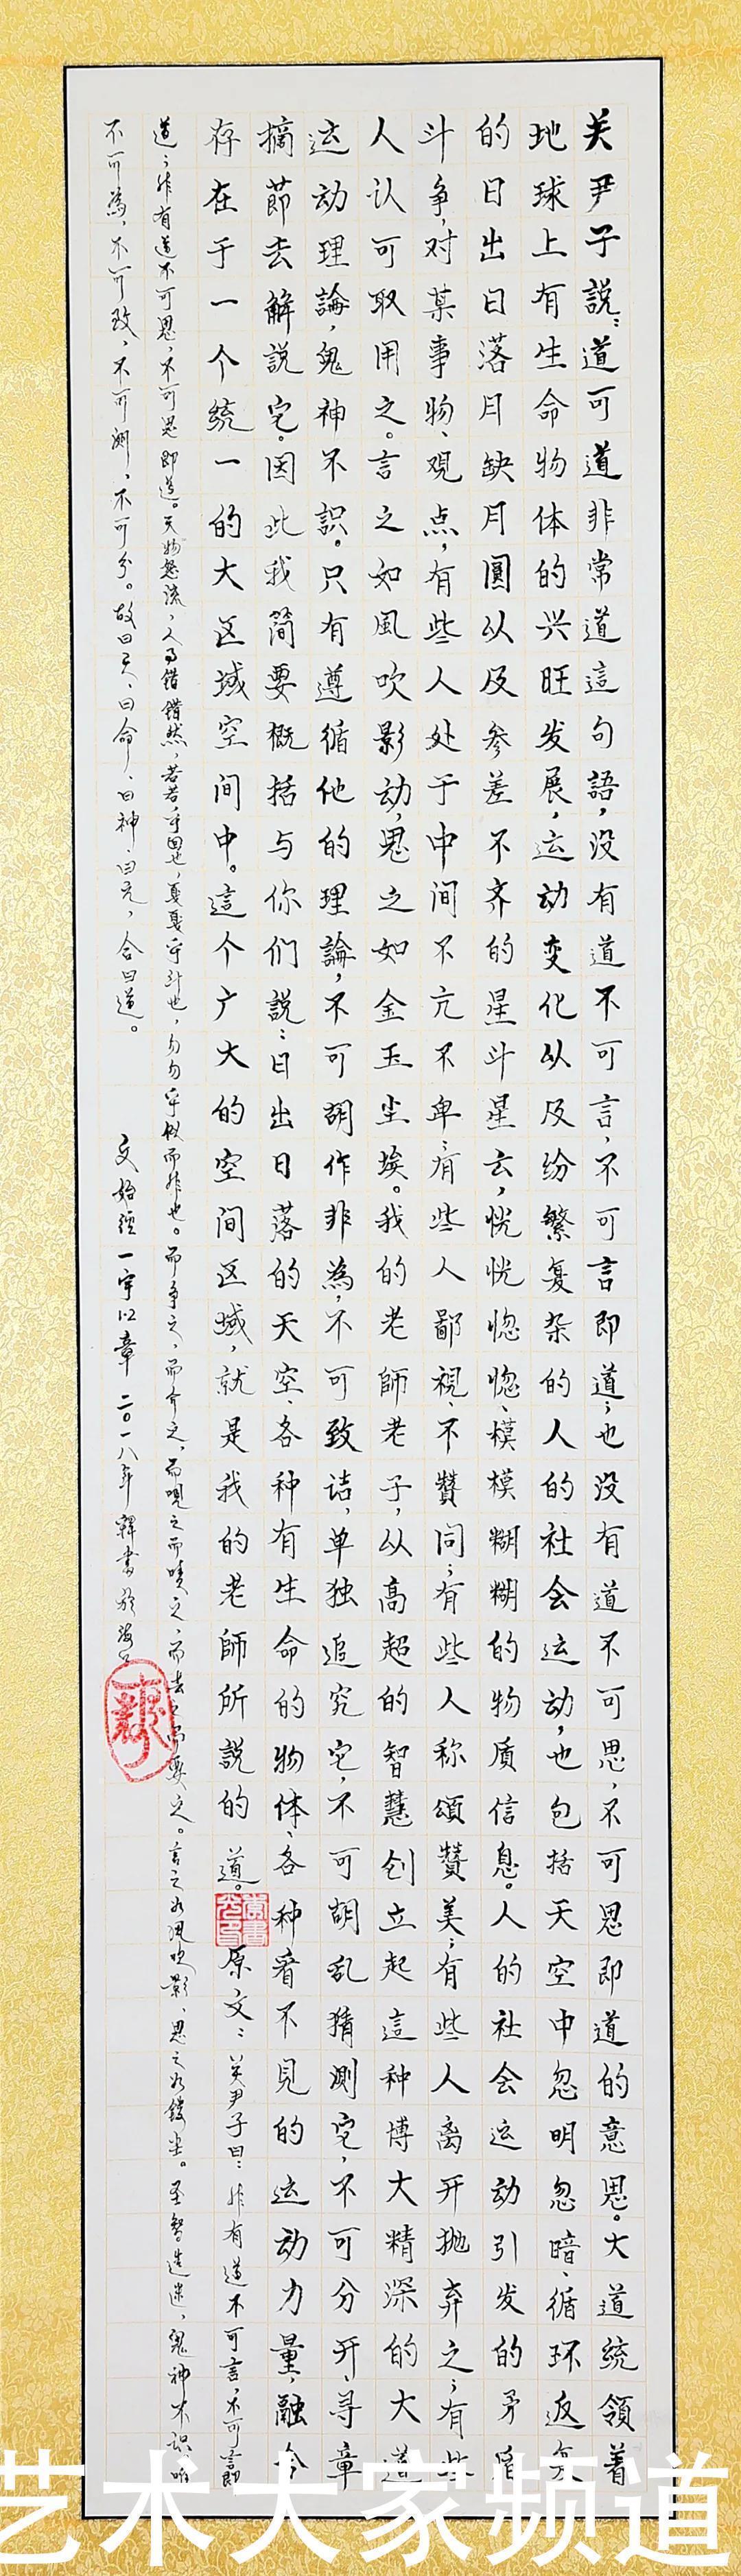 关尹子説：道可道非常道這句語，没有道不可言，不可言即道；也没有道不可思，不可思即道的意思。大道统领着
地球上有生命物体的兴旺发展，运动变化以及纷繁复杂的人的社会运动，也包括天空中忽明忽暗、循环返复
的日出日落月缺月圓以及参差不齐的星斗星云，恍恍惚惚、模模糊糊的物质信息。人的社会运动引发的矛盾
斗争，对某事物、观点，有些人处于中间不亢不卑；有些人鄙視、不贊同；有些人称頌贊美；有些人离开抛弃之；有些
人认可取用之。言之如風吹影动，思之如金玉尘埃。我的老師老子，从高超的智慧创立起這种博大精深的大道
运动理論，鬼神不識。只有遵循他的理論，不可胡作非為，不可致诘，单独追究它，不可胡乱猜测它，不可分开、寻章
摘節去解説它。因此我简要概括与你们説：日出日落的天空、各种有生命的物体、各种看不見的运动力量，融合
存在于一个统一的大区域空间中。這个广大的空间区域，就是我的老師所説的道。原文：关尹子曰：非有道不可言，不可言即
道；非有道不可思，不可思即道。天物怒流，人事错错然，若若乎回也，戛戛乎斗也，勿勿乎似而非也。而争之，而介之，而哯之，而啧之，而去之，而要之。言之如吹影，思之如镂尘。圣智造迷，鬼神不识。唯
不可為，不可致，不可测，不可分。故曰天、曰命、曰神、曰元，合曰道。 文始经一宇以章 二〇一八年韓書於
艺术大家频道